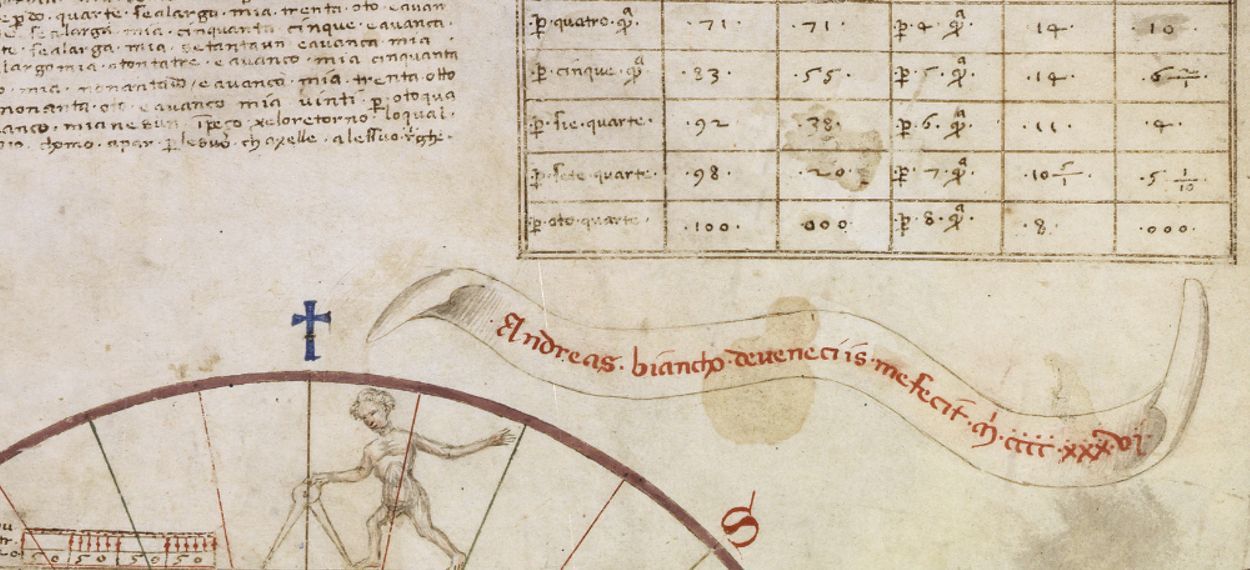 quarte · se alarga · mia · trenta · oto · e avan
se alarga · mia · cinquanta · cinque · e avança ·
te · se alarga · mia · setantaun e avança mia ·
largo mia · otontatre · e avanço · mia cinquanta
mia · nonantado / e avanço · mia · trenta · otto
nonanta · oto · e avanco mia vinti · ꝑ otoqua
anco · mia nesun · retorno · loqual ·
chomo · apar ·
ꝑ · quatro · qᵃ · 71 · · 71 · ꝑ 4 · qᵃ · 14 · 10 ·
ꝑ · cinque · qᵃ · 83 · 55 · ꝑ · 5 · qᵃ · 14 · · 6
ꝑ · sie · quarte · · 92 · 38 · ꝑ · 6 · qᵃ · 11 · · 4 ·
ꝑ · sete · quarte · · 98 · · 20 · ꝑ · 7 · qᵃ · 10 5/1 · · 5 1/10
ꝑ · oto · quarte · · 100 · · 000 · ꝑ · 8 · qᵃ · 8 · · 000 ·
Andreas · biancho · de veneciis · me fecit · M · cccc · xxx · vj ·
S
50 50 50 50